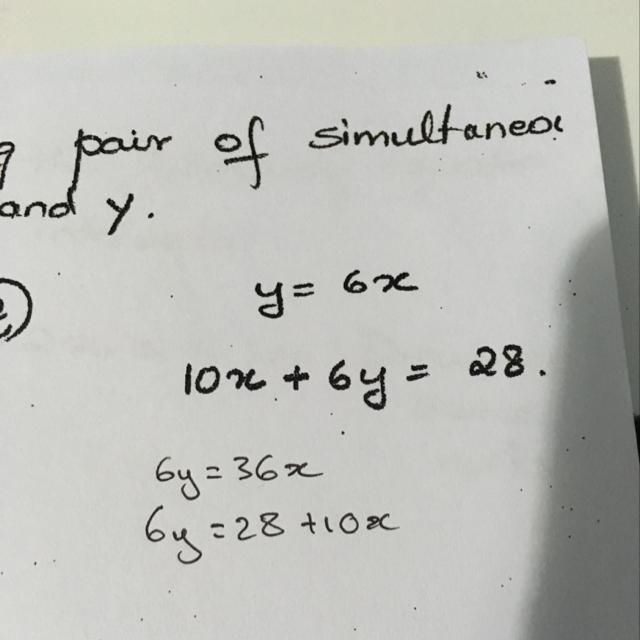 pair of simultaneo
and y.
y = 6x
10x + 6y = 28.
6y = 36x
6y = 28 + 10x